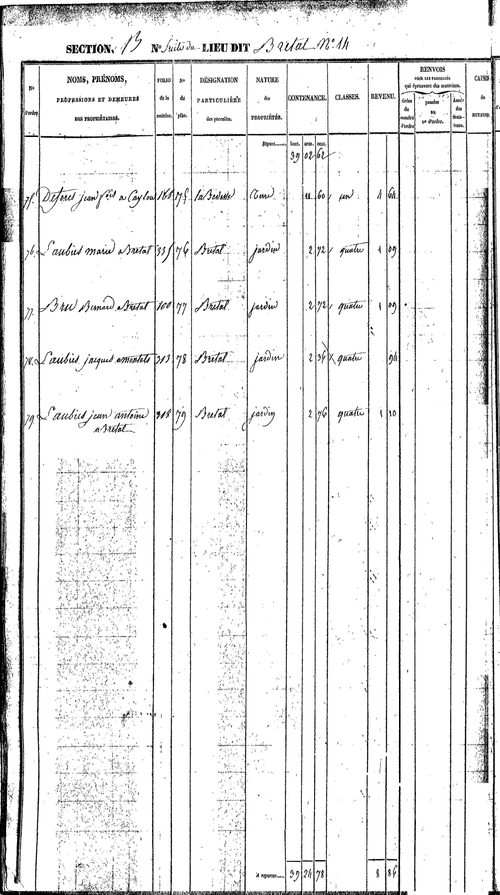 SECTION. 13 N° Suite du LIEU DIT Bretat N° 14
N° d'ordre
NOMS, PRÉNOMS, PROFESSIONS ET DEMEURES DES PROPRIÉTAIRES.
FOLIO de la matrice.
N° du plan.
DÉSIGNATION PARTICULIÈRE des parcelles.
NATURE des PROPRIÉTÉS.
CONTENANCE.
CLASSES.
REVENU.
RENVOIS
POUR LES PARCELLES
qui éprouvent des mutations.
Année des mutations.
CAUSE
Report hect. ares cent.
39 02 62
75. jean à Caylus 168 75 Terre 11 60 un 4 64
76. Laubies marie a Bretat 335 76 Bretat jardin 2 72 quatre 1 09
77. Bru Bernard a Bretat 100 77 Bretat jardin 2 72 quatre 1 09
78. Laubies jacques 313 78 Bretat jardin 2 36 quatre 94
79. Laubies jean antoine 318 79 Bretat jardin 2 76 quatre 1 10
a Bretat
A reporter 39 24 78 8 86